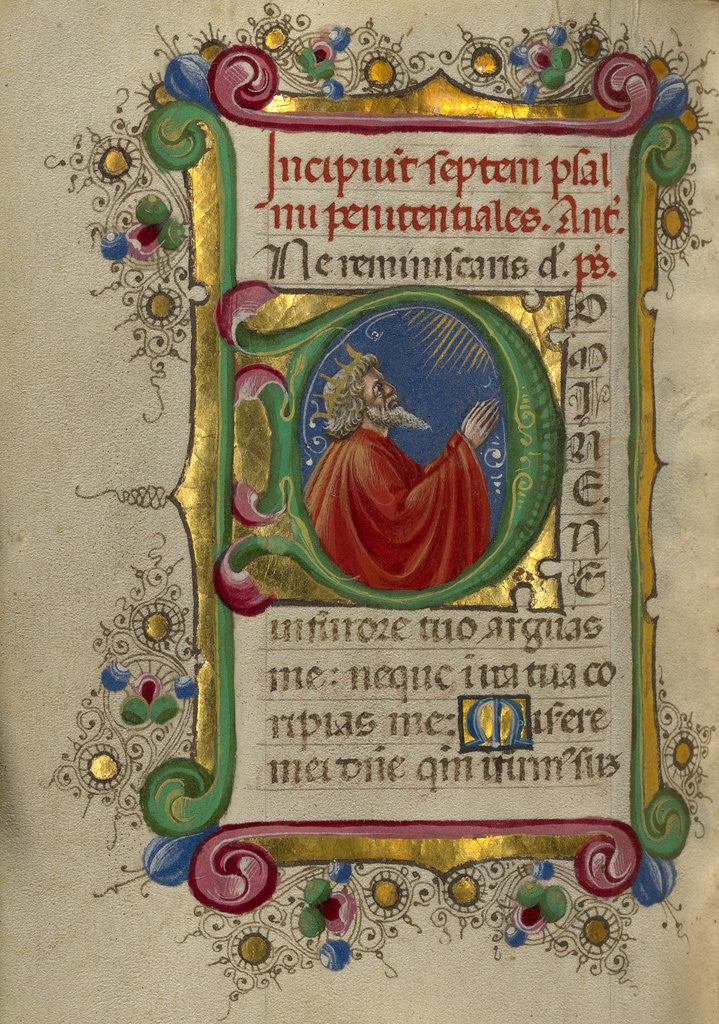 Incipiu͞t septem psal
mi penitentiales. Ant̉.
Ne reminiscaris d̉. ps̉.
D
O
M
I
N
E.
N
E
in furore tuo arguas
me: neque i ira tua co
ripias me: Misere
mei dn̄e qm̄ ifirm᷒ sus